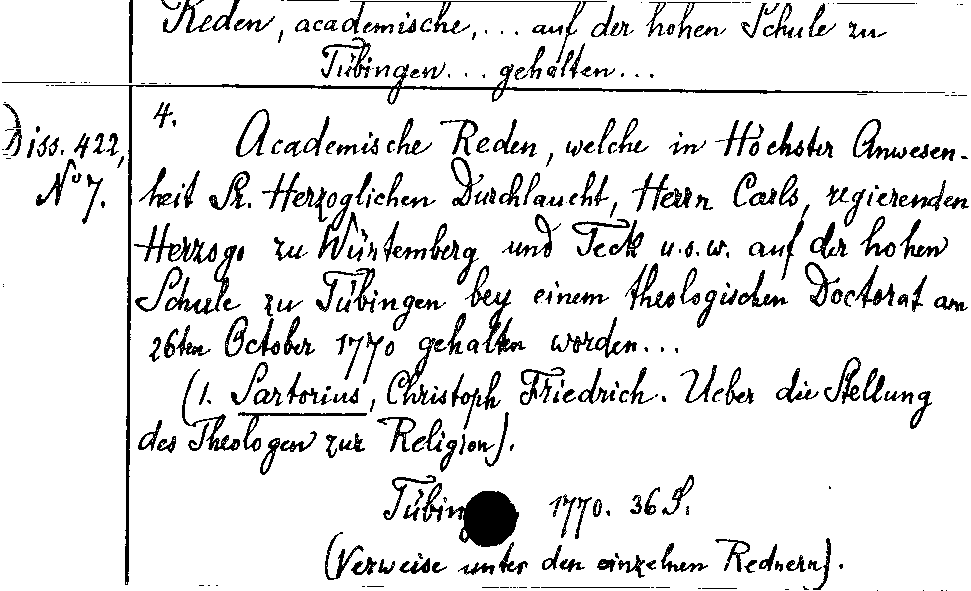 Reden, academische, ... auf der hohen Schule zu
Tübingen ... gehalten ...
4.
Diss. 422,
No 7.
Academische Reden, welche in Höchster Anwesen-
heit Sr. Herzoglichen Durchlaucht, Herrn Carls, regierenden
Herzogs zu Würtemberg und Teck u.s.w. auf der hohen
Schule zu Tübingen bey einem theologischen Doctorat am
26ten October 1770 gehalten worden...
(1. Sartorius, Christoph Friedrich. Ueber die Stellung
des Theologen zur Religion).
1770. 36 S.
(Verweise unter den einzelnen Rednern).